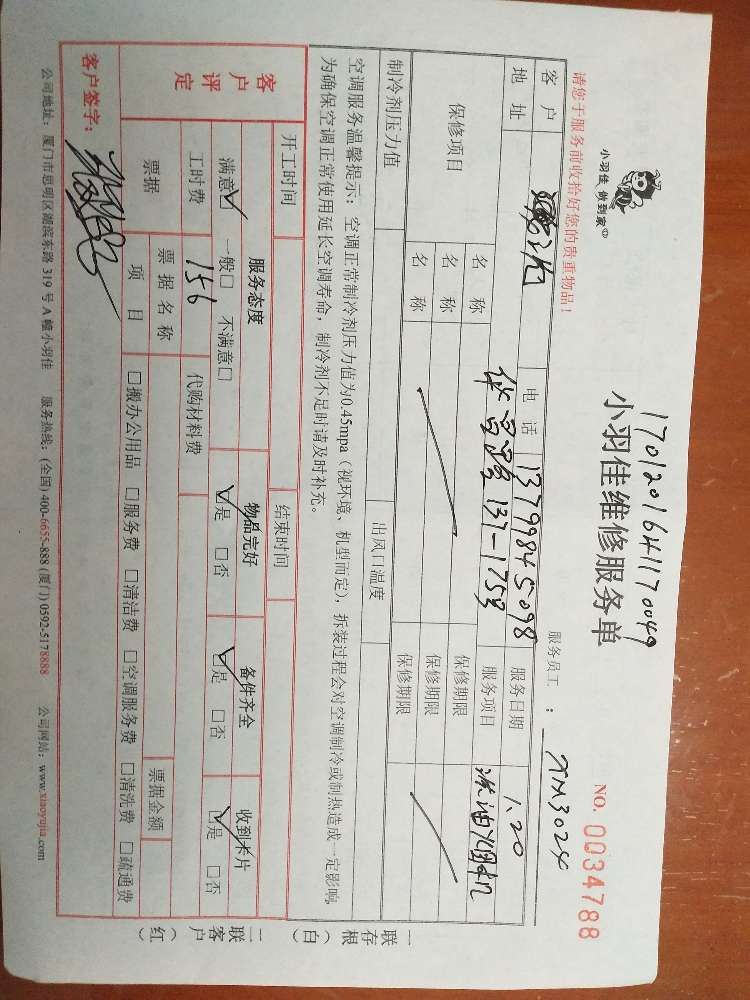 1701201641170049
小羽佳 做到家
小羽佳维修服务单
NO. 0034788
请您于服务前收拾好您的贵重物品!
服务员工：XM3024
客户 电话 13799845098 服务日期 1.20
地址 137-175号 服务项目 洗油烟机
保修项目 名称 保修期限
名称 保修期限
名称 保修期限
制冷剂压力值 出风口温度
空调服务温馨提示：空调正常制冷剂压力值为0.45mpa（视环境、机型而定），拆装过程会对空调制冷或制热造成一定影响，
为确保空调正常使用延长空调寿命，制冷剂不足时请及时补充。
开工时间 结束时间
客户评定 服务态度 物品完好 备件齐全 收到卡片
满意☑ 一般□ 不满意□ ☑是 □否 ☑是 □否 ☑是 □否
工时费 156 代购材料费
票据 票据名称 票据金额
项目 □搬办公用品 □服务费 □清洁费 □空调服务费 □清洗费 □疏通费
客户签字：
公司地址：厦门市思明区湖滨东路 319 号 A 幢小羽佳 服务热线：(全国) 400-6655-888 (厦门) 0592-5178888 公司网站：www.xiaoyujia.com
一联存根（白）
一联客户（红）